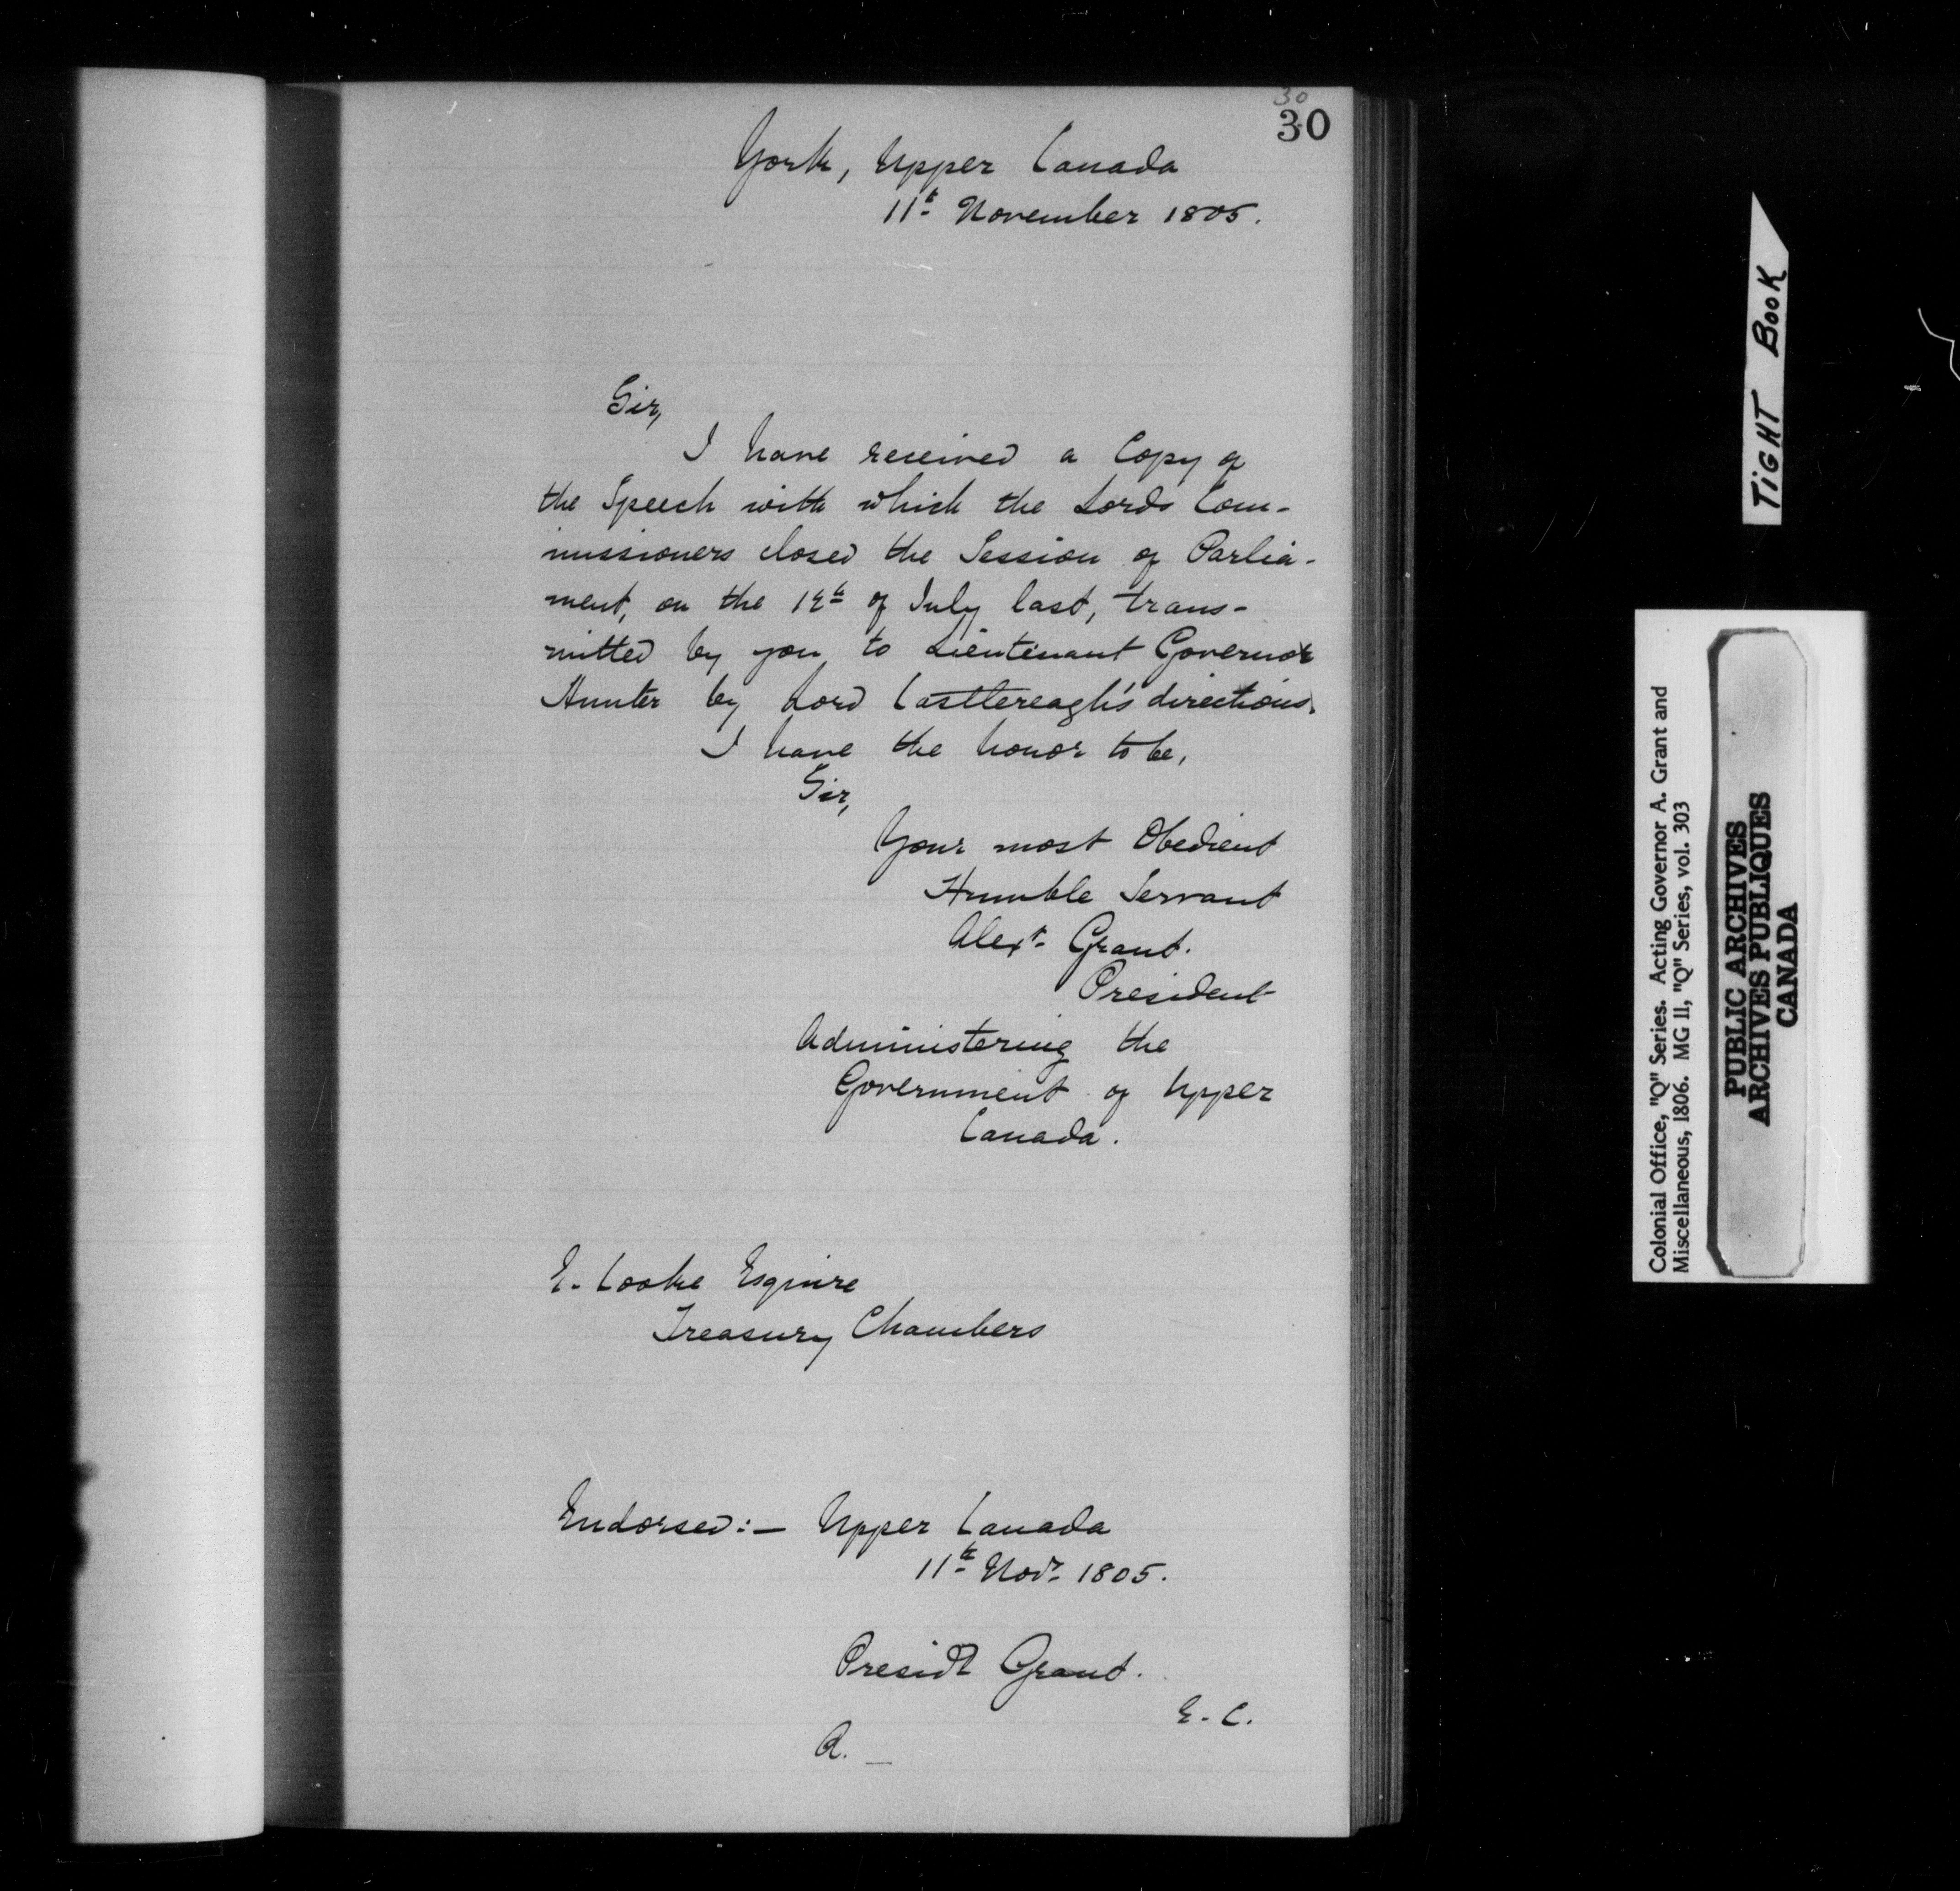 30
30
York, Upper Canada
11t November 1805.
Sir,
I have received a Copy of
the Speech with which the Lords Com-
missioners closed the Session of Parlia-
ment, on the 12th of July last, trans-
mitted by you to Lieutenant Governor
Hunter by Lord Castlereagh's directions.
I have the honor to be,
Sir,
Your most Obedient
Humble Servant
Alexr Grant.
President
Administering the
Government of Upper
Canada.
E. Cooke Esquire
Treasury Chambers
Endorsed:— Upper Canada
11th Novr 1805.
Presidt Grant.
E. C.
A. —
TIGHT BOOK
Colonial Office, "Q" Series. Acting Governor A. Grant and
Miscellaneous, 1806. MG 11, "Q" Series, vol. 303
PUBLIC ARCHIVES
ARCHIVES PUBLIQUES
CANADA